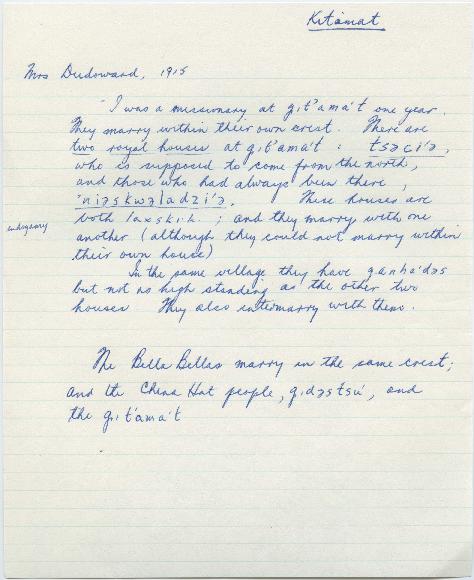 Kitamat
Mrs Dudoward, 1915
"I was a missionary at g.it'ama·'t one year.
They marry within their own crest. There are
two royal houses at g.it'ama·'t : tsəci'ə,
who is supposed to come from the north,
and those who had always been there,
'niəskwəladzi'ə. These houses are
both laxski·k. ; and they marry with one
endogamy
another (although they could not marry within
their own house)
In the same village they have ganha'dəs
but not as high standing as the other two
houses They also intermarry with them.
The Bella Bellas marry in the same crest;
and the China Hat people, g.idəstsu', and
the g.it'ama·'t